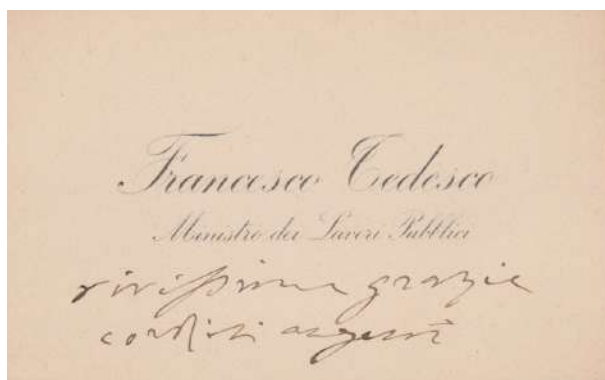 Francesco Tedesco
Ministro dei Lavori Pubblici
vivissime grazie
cordiali auguri